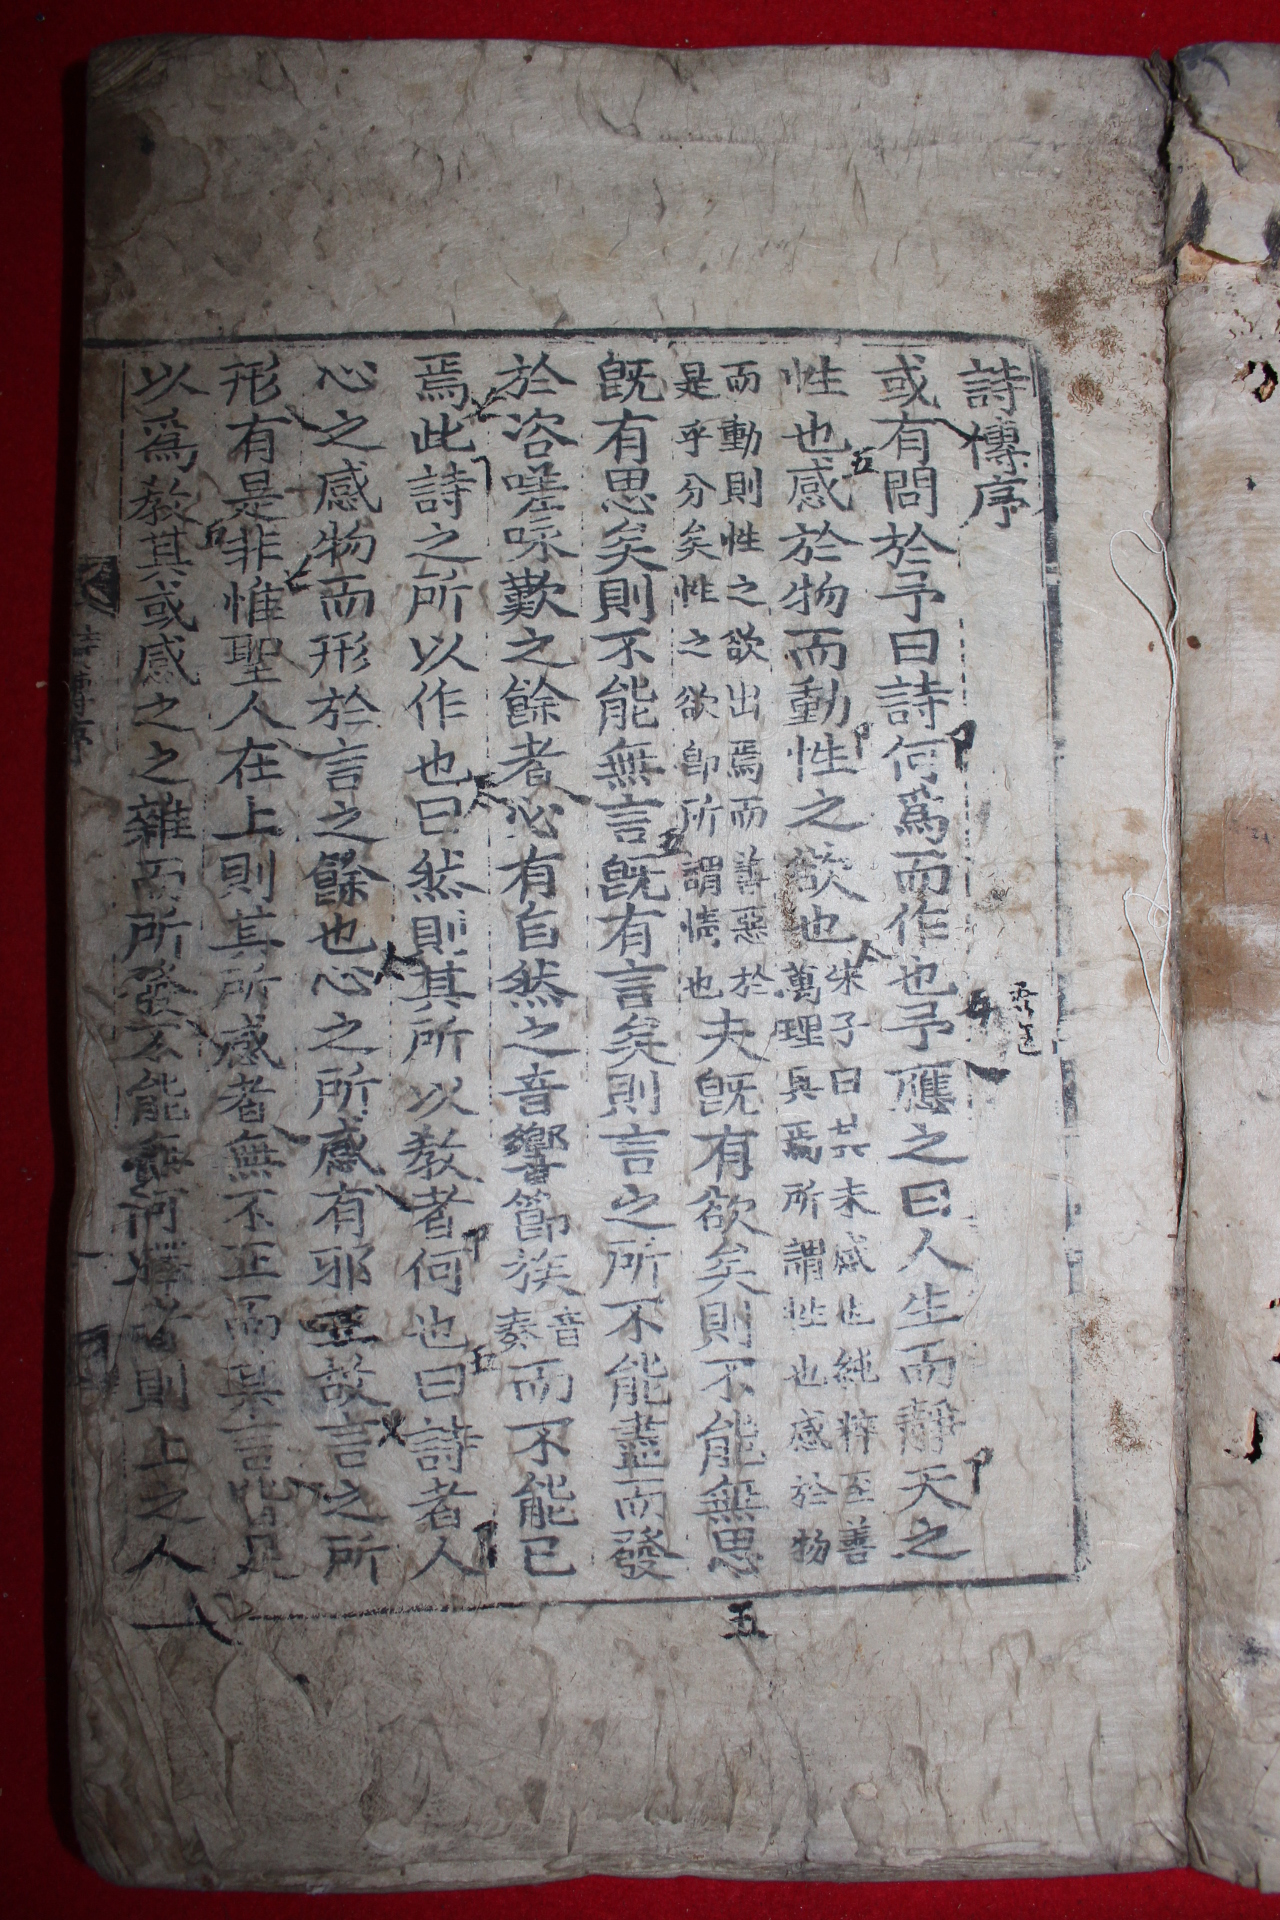 詩傳序
或有問於予曰詩何爲而作也予應之曰人生而靜天之
性也感於物而動性之欲也
朱子曰其未感也純粹至善
萬理具焉所謂性也感於物
而動則性之欲出焉而善惡於
是乎分矣性之欲卽所謂情也
夫旣有欲矣則不能無思
旣有思矣則不能無言旣有言矣則言之所不能盡而發
於咨嗟咏歎之餘者必有自然之音響節族
音
奏
而不能已
焉此詩之所以作也曰然則其所以教者何也曰詩者人
心之感物而形於言之餘也心之所感有邪正故言之所
形有是非惟聖人在上則其所感者無不正而其言皆足
以爲教其或感之之雜而所發不能無可擇者則上之人
詩傳序
五